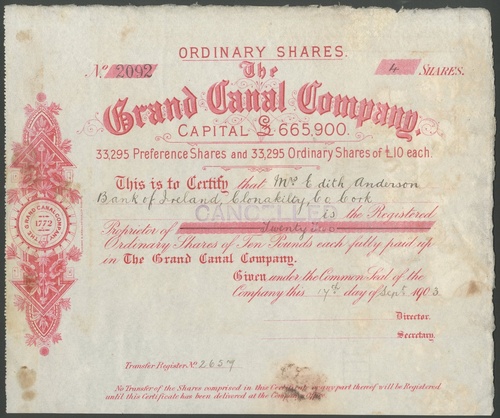 ORDINARY SHARES.
No. 2092
4 SHARES.
The
Grand Canal Company.
CAPITAL £665,900.
33,295 Preference Shares and 33,295 Ordinary Shares of £10 each.
This is to Certify that Mrs Edith Anderson
Bank of Ireland, Clonakilty Co Cork
CANCELLED
is the Registered
Proprietor of
Ordinary Shares of Ten Pounds each fully paid up
in The Grand Canal Company.
Given under the Common Seal of the
Company this 17th day of Sept 1903
Director.
Secretary.
Transfer Register No 2659
No Transfer of the Shares comprised in this Certificate or any part thereof will be Registered
until this Certificate has been delivered at the Company's
THE GRAND CANAL COMPANY
1772